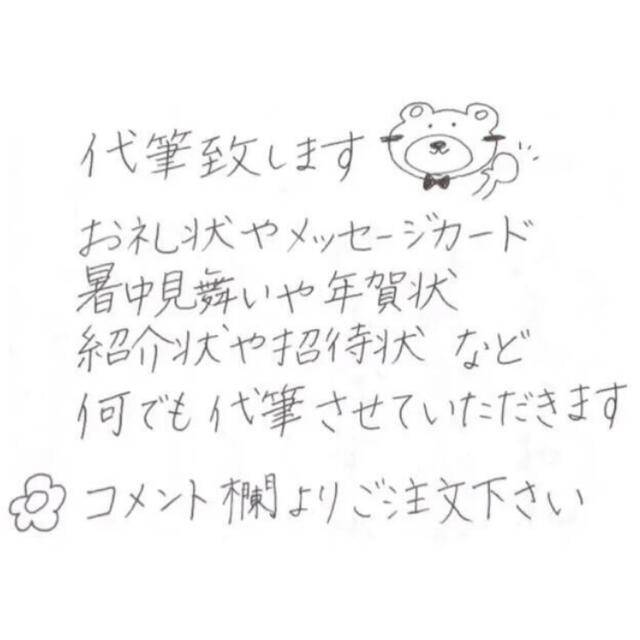 代筆致します
お礼状やメッセージカード
暑中見舞いや年賀状
紹介状や招待状 など
何でも代筆させていただきます
コメント欄よりご注文下さい